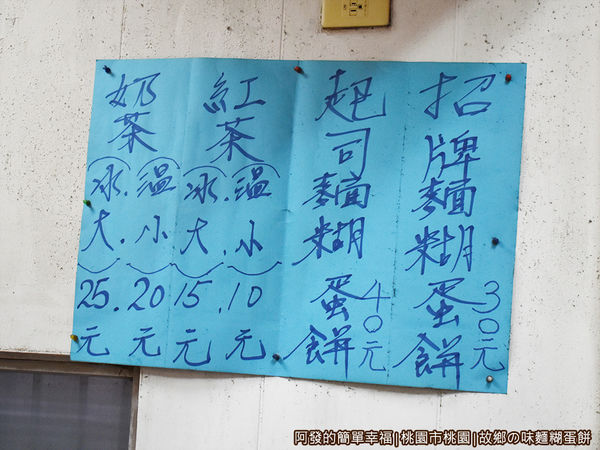 招牌麵糊蛋餅 30元
起司麵糊蛋餅 40元
紅茶
(溫.冰)
小.大
10.15
元 元
奶茶
(溫.冰)
小.大
20.25
元 元
阿發的簡單幸福|桃園市桃園|故鄉の味麵糊蛋餅